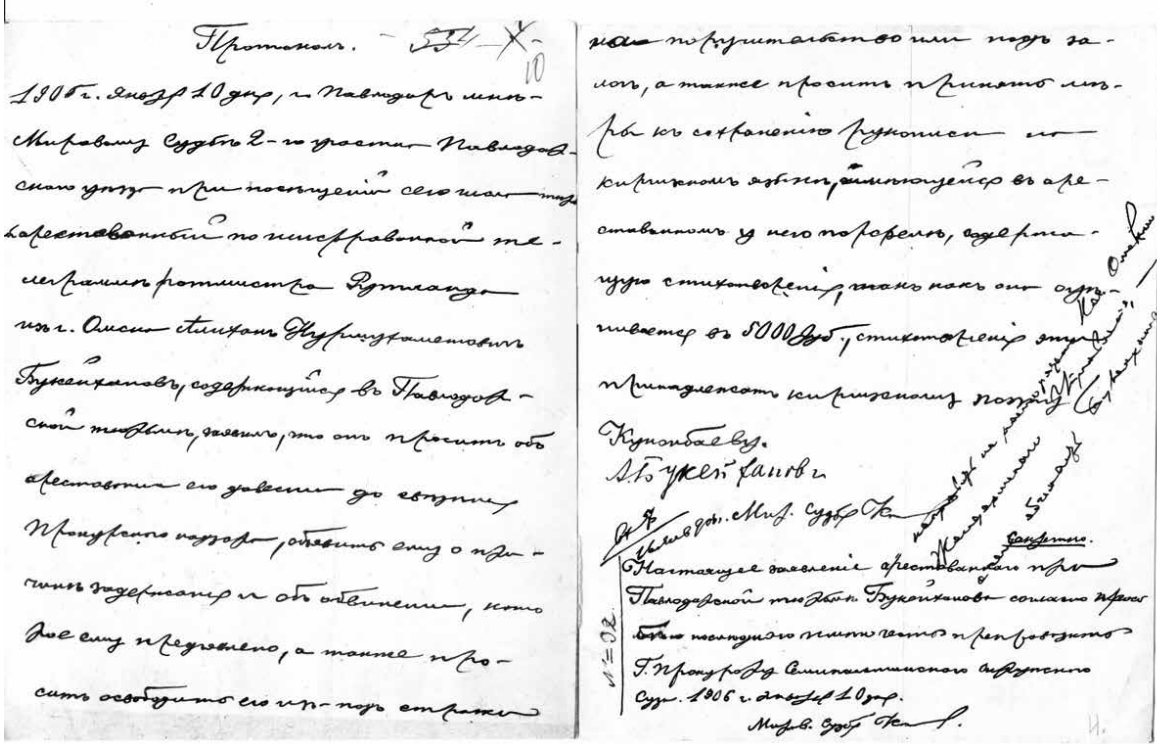 Протоколъ.
10
1906 г. Января 10 дня, г. Павлодаръ мнѣ
Мировому Судьѣ 2-го участка Павлодар-
скаго уѣзда при посѣщеніи сего числа тюрьмы
арестованный по шифрованной те-
леграммѣ ротмистра Рутланда
изъ г. Омска Алиханъ Нурмухаметовичъ
Букейхановъ, содержащійся въ Павлодар-
ской тюрьмѣ, заявилъ, что онъ проситъ объ
арестованіи его довести до свѣдѣнія
Прокурскаго надзора, объявить ему о при-
чинѣ задержанія и объ обвиненіи, кото
рое ему предъявлено, а также про-
ситъ освободить его изъ-подъ стражи
на поручительство или подъ за-
логъ, а также проситъ принять мѣ-
ры къ сохраненію рукописи на
киргизскомъ языкѣ, имѣющейся въ аре-
стованномъ у него портфелѣ, содержа-
щую стихотворенія, такъ какъ она оцѣ-
нивается въ 5000 руб., стихотворенія эти
принадлежатъ киргизскому поэту
Кунанбаеву.
А. Букейхановъ
Мир. Судья
Секретно.
Настоящее заявленіе арестованнаго при
Павлодарской тюрьмѣ Букейханова согласно прось
бы послѣдняго препроводить
Г. Прокурору Семипалатинскаго Окружнаго
Суда. 1906 г. Января 10 дня.
Миров. Судья
№ 32